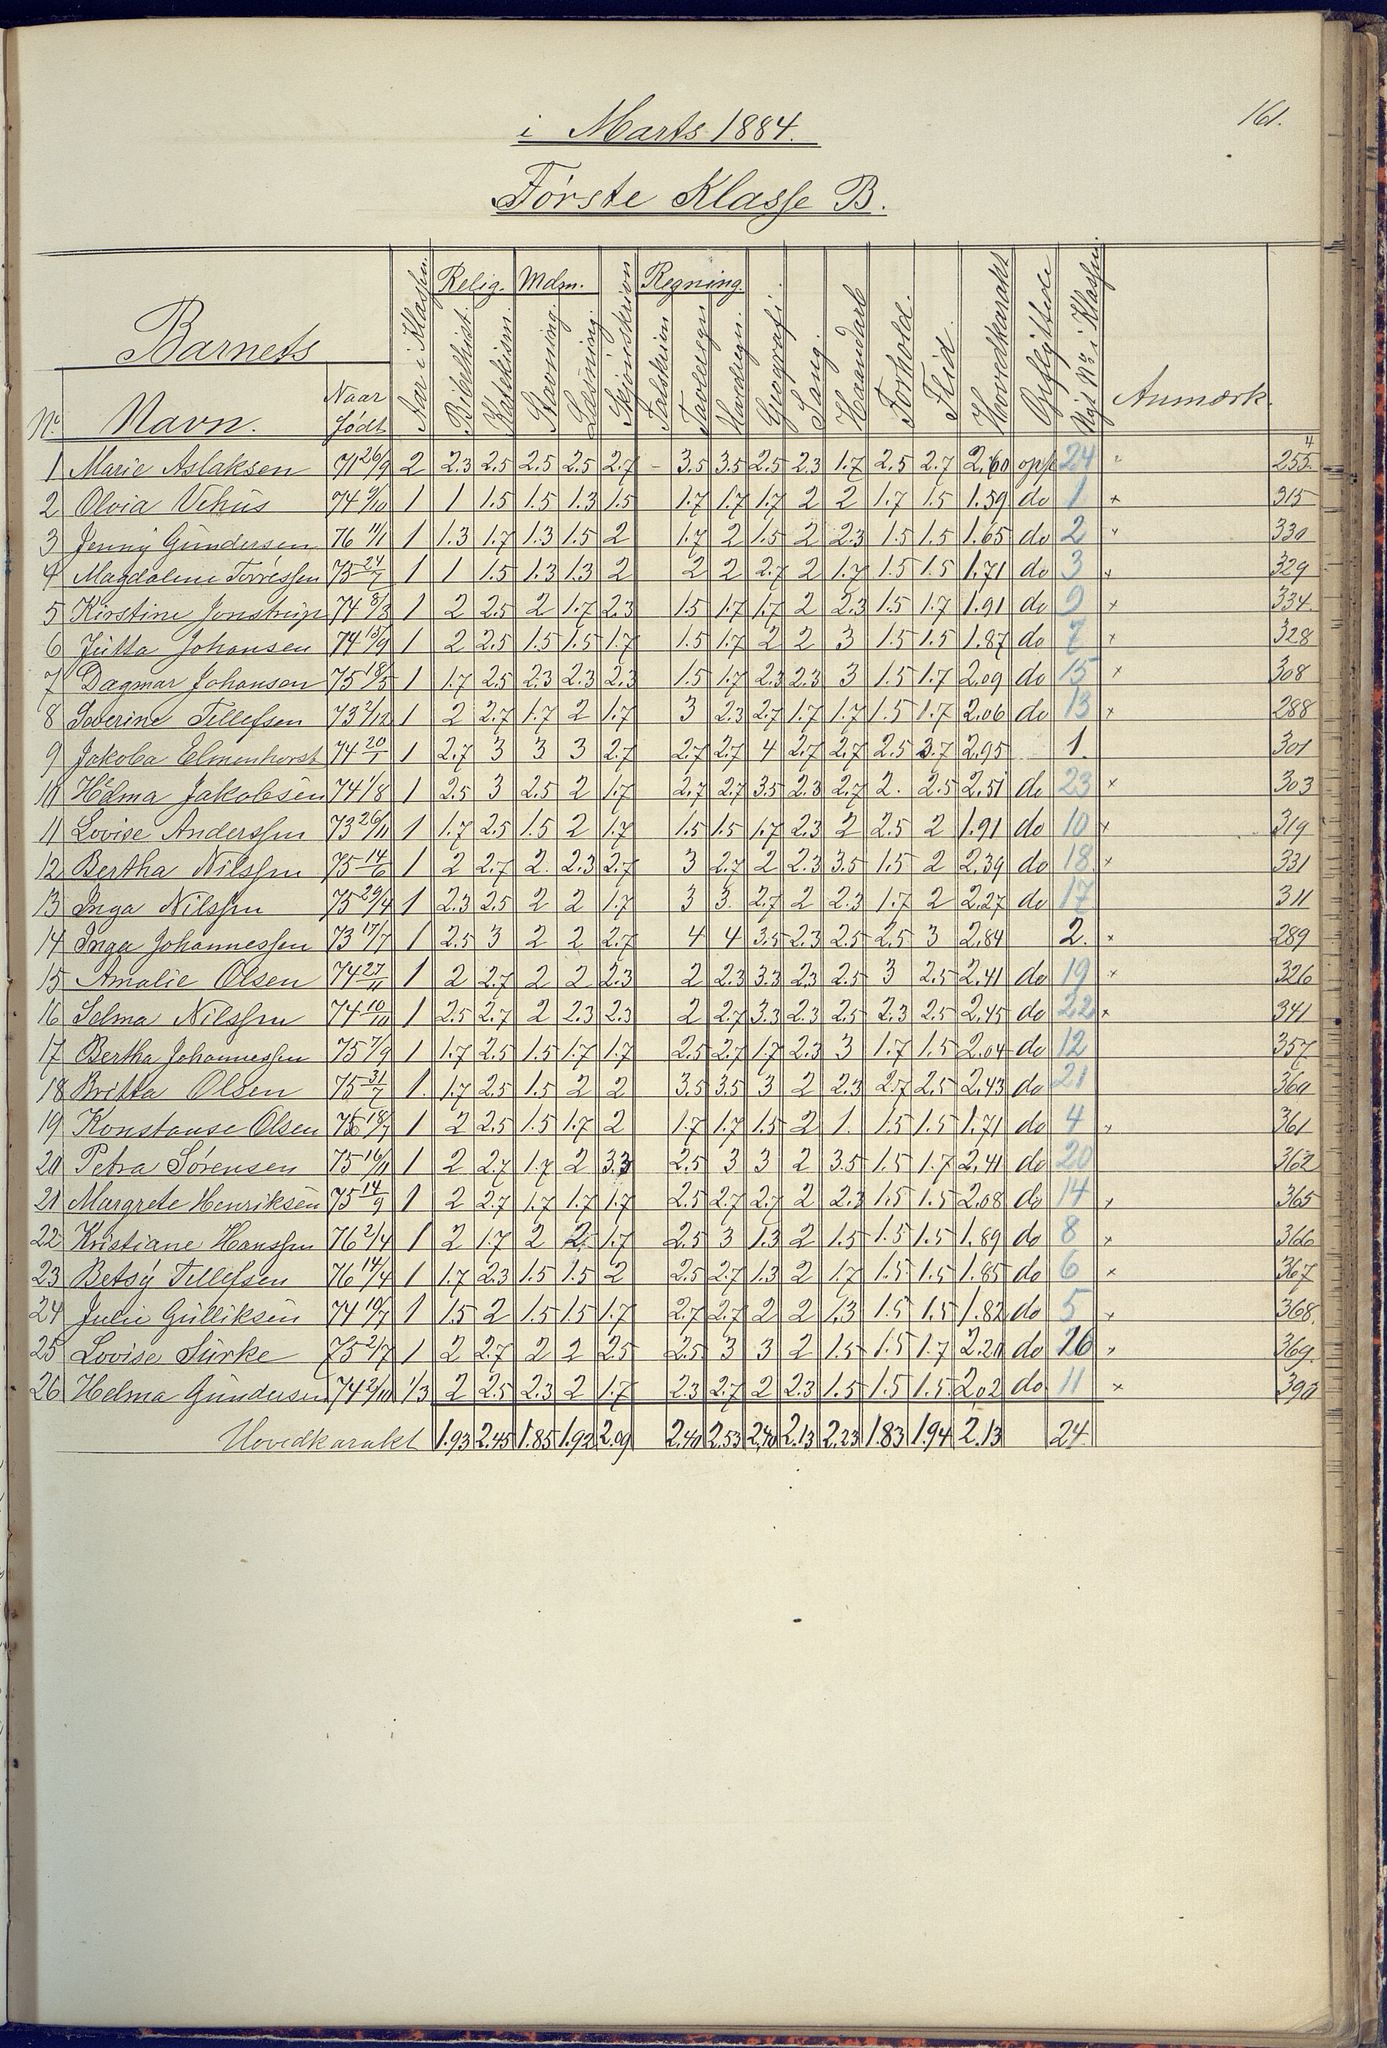 161.
i Marts 1884.
Første Klasse B.
Barnets Aar i Klassen. Relig. Mdm. Skjønskrivn Regning. Geografi. Sang. Haandarb Forhold. Flid. Hovedkarakt Opflyttede Nyt No i Klassen Anmærk.
No Navn. Naar Født Bibelhist. Katekism. Stavning. Læsning. Talskrivn Tavleregn Hovedregn.
1 Marie Aslaksen 71 26/9 2 2.3 2.5 2.5 2.5 2.7 - 3.5 3.5 2.5 2.3 1.7 2.5 2.7 2.60 opfl 24 255. 4
2 Olvia Vehus 74 9/10 1 1 1.5 1.5 1.3 1.5 1.7 1.7 1.7 2 2 1.7 1.5 1.59 do 1 × 315
3 Jenny Gundersen 76 11/1 1 1.3 1.7 1.3 1.5 2 1.7 2 1.5 2 2.3 1.5 1.5 1.65 do 2 × 330
4 Magdalene Torressen 75 24/7 1 1 1.5 1.3 1.3 2 2 2 2.7 2 1.7 1.5 1.5 1.71 do 3 × 329
5 Kirstine Jonstrup 74 8/3 1 2 2.5 2 1.7 2.3 1.5 1.7 1.7 2 2.3 1.5 1.7 1.91 do 9 × 334
6 Jutta Johansen 74 13/9 1 2 2.5 1.5 1.5 1.7 1.5 1.7 2 2 3 1.5 1.5 1.87 do 7 × 328
7 Dagmar Johansen 75 18/5 1 1.7 2.5 2.3 2.3 2.3 1.5 1.7 2.3 2.3 3 1.5 1.7 2.09 do 15 × 308
8 Severine Tellefsen 73 2/12 1 2 2.7 1.7 2 1.7 3 2.3 2.7 1.7 1.7 1.5 1.7 2.06 do 13 × 288
9 Jakoba Elmenhorst 74 20/1 1 2.7 3 3 3 2.7 2.7 2.7 4 2.7 2.7 2.5 3.7 2.95 1. 301
10 Helma Jakobsen 74 1/8 1 2.5 3 2.5 2 1.7 2.7 2.7 3.5 2.3 2.7 2. 2.5 2.51 do 23 × 303
11 Lovise Anderssen 73 26/11 1 1.7 2.5 1.5 2 1.7 1.5 1.5 1.7 2.3 2 2.5 2 1.91 do 10 × 319
12 Bertha Nilssen 75 14/6 1 2 2.7 2. 2.3 2.7 3 2.7 2 2.3 3.5 1.5 2 2.39 do 18 × 331
13 Inga Nilssen 75 29/4 1 2.3 2.5 2 2 1.7 3 3. 2.7 2 2.3 1.7 2 2.27 do 17 311
14 Inga Johannessen 73 17/7 1 2.5 3 2 2 2.7 4 4 3.5 2.3 2.5 2.5 3 2.84 2. × 289
15 Amalie Olsen 74 27/11 1 2 2.7 2 2 2.3 2 2.3 3.3 2.3 2.5 3 2.5 2.41 do 19 × 326
16 Selma Nilssen 74 10/10 1 2.5 2.7 2 2.3 2.3 2 2.7 3.3 2.3 2.5 2.3 2.5 2.45 do 22 × 341
17 Bertha Johannessen 75 7/9 1 1.7 2.5 1.5 1.7 1.7 2.5 2.7 1.7 2.3 3 1.7 1.5 2.04 do 12 357
18 Britta Olsen 75 31/7 1. 1.7 2.5 1.5 2 2 3.5 3.5 3 2 2.3 2.7 2.5 2.43 do 21 360
19 Konstanse Olsen 18/7 1 2 2.5 1.5 1.7 2 1.7 1.7 1.5 2 1. 1.5 1.5 1.71 do 4 × 361
20 Petra Sørensen 75 16/11 1 2 2.7 1.7 2 3.3 2.5 3 3 2 3.5 1.5 1.7 2.41 do 20 362
21 Margrete Henriksen 75 14/9 1 2 2.7 1.7 1.7 1.7 2.5 2.7 2.7 2 2.3 1.5 1.5 2.08 do 14 × 365
22 Kristiane Hanssen 76 2/4 1 2 1.7 2 2 1.7 2.5 3 1.3 2 1.5 1.5 1.5 1.89 do 8 × 366
23 Betsy Tellefsen 76 14/4 1 1.7 2.3 1.5 1.5 2 2.5 2.7 1.3 2 1.7 1.5 1.5 1.85 do 6 × 367
24 Julie Gulliksen 74 10/7 1 1.5 2 1.5 1.5 1.7 2.7 2.7 2 2 1.3 1.5 1.5 1.82 do 5 × 368.
25 Lovise Turke 75 2/7 1 2 2.7 2 2 2.5 2.5 3 3 2 1.5 1.5 1.7 2.20 do 16 × 369.
26 Helma Gundersen 74 2/10 1/3 2 2.5 2.3 2 1.7 2.3 2.7 2 2.3 1.5 1.5 1.5 2.02 do 11 × 390
Hovedkarakt 1.93 2.45 1.85 1.92 2.09 2.40 2.53 2.40 2.13 2.23 1.83 1.94 2.13 24.